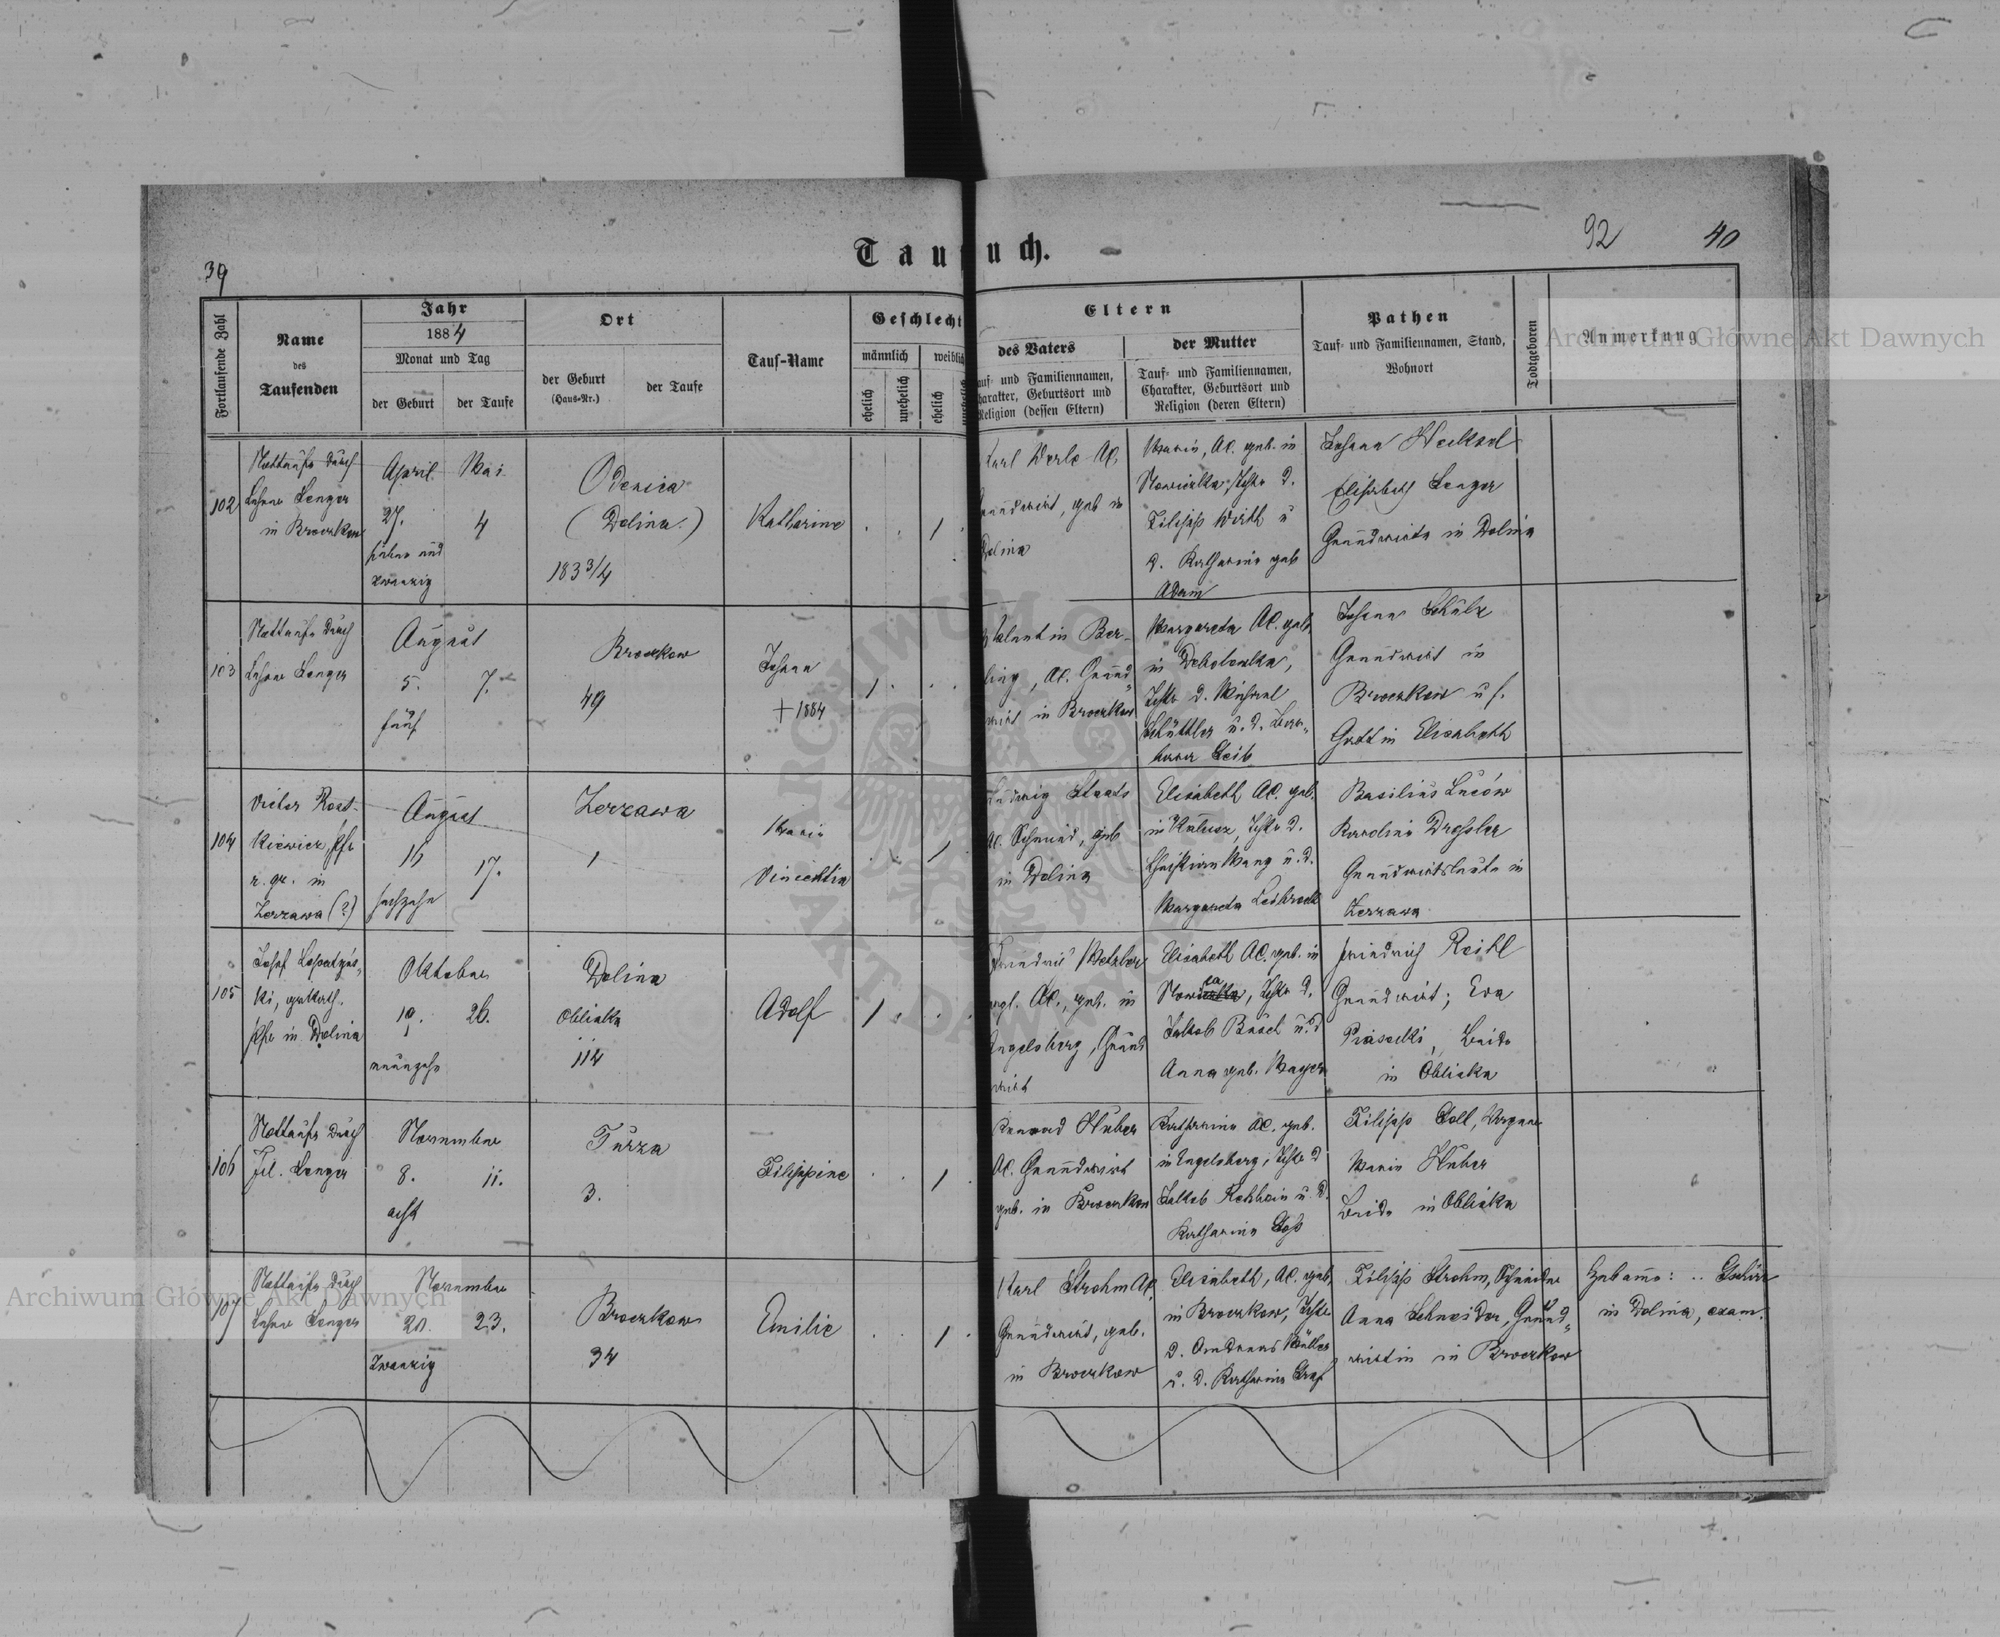 92
40
39
Taufbuch.
Fortlaufende Zahl
Name
des
Taufenden
Jahr
1884
Monat und Tag
der Geburt
der Taufe
Ort
der Geburt
(Haus-Nr.)
der Taufe
Tauf-Name
Geschlecht
männlich
weiblich
ehelich
unehelich
ehelich
Eltern
des Vaters
Tauf- und Familiennamen,
Charakter, Geburtsort und
Religion (dessen Eltern)
der Mutter
Tauf- und Familiennamen,
Charakter, Geburtsort und
Religion (deren Eltern)
Pathen
Tauf- und Familiennamen, Stand,
Wohnort
Todtgeboren
Anmerkung
102
Nottaufe durch
Lehrer Senger
in Broczkow
April
27.
sieben und
zwanzig
Mai
4
Odenica
(Dolina.)
183 3/4
Katharine
1
Karl Werle AC,
Grundwirt, geb in
Dolina
Maria, AC. geb. in
Nowicka, Tcht. d.
Filipp Wirth u
d. Katharina geb
Adam
Johann
Elisabeth Senger
Grundwirte in Dolina
103
Nottaufe durch
Lehrer Senger
August
5.
fünf
7.
Broczkow
49
Johann
+ 1884
1
Valentin Ber-
ling, AC. Grund-
wirt in Broczkow
Margareta AC. geb.
in Debolowka,
Tcht. d. Michael
Schüttler u. d. Bar-
bara Leib
Johann Schulz
Grundwirt in
Broczkow u s.
Gattin Elisabeth
104
Victor Rost-
kiewicz, Pfr
r. gr. in
Zerzawa (?)
August
16
sechzehn
17.
Zerzawa
1
Maria
Vincentia
1
Ludwig Staats
AC. Schmied, geb
in Dolina
Elisabeth AC. geb.
in Kalusz, Tcht. d.
Christian Mang u. d.
Margareta Leibrock
Basilius Luców
Karolina Drossler
Grundwirtsleute in
Zerzawa
105
Josef Lopatyńs-
ki, gr. kath.
Pfr in Dolina
Oktober
19.
neunzehn
26.
Dolina
Obliska
114
Adolf
1
Friedrich Metzler
evgl. AC., geb. in
Engelsberg, Grund
wirt
Elisabeth AC. geb. in
Nowica, Tcht. d.
Jakob Busch u. d
Anna geb. Mayer
Friedrich Reihl
Grundwirt; Eva
Piasecki, beide
in Obliska
106
Nottaufe durch
Fil. Senger
November
8.
acht
11.
Turza
3.
Filippine
1
Konrad Huber
AC. Grundwirt
geb. in Broczkow
Katharina AC. geb.
in Engelsberg, Tcht. d
Jakob Rebhein u. d.
Katharina
Filipp
Maria Huber
beide in Obliska
107
Nottaufe durch
Lehrer Senger
November
20.
zwanzig
23.
Broczkow
34
Emilie
1
Karl Strohm AC.
Grundwirt, geb.
in Broczkow
Elisabeth, AC. geb.
in Broczkow, Tcht.
d. Andreas Müller
u. d. Katharina Graf
Filipp Strohm, Schneider
Anna Schneider, Grund-
wirtin in Broczkow
Hebamme:
in Dolina, exam.
Archiwum Główne Akt Dawnych
Archiwum Główne Akt Dawnych